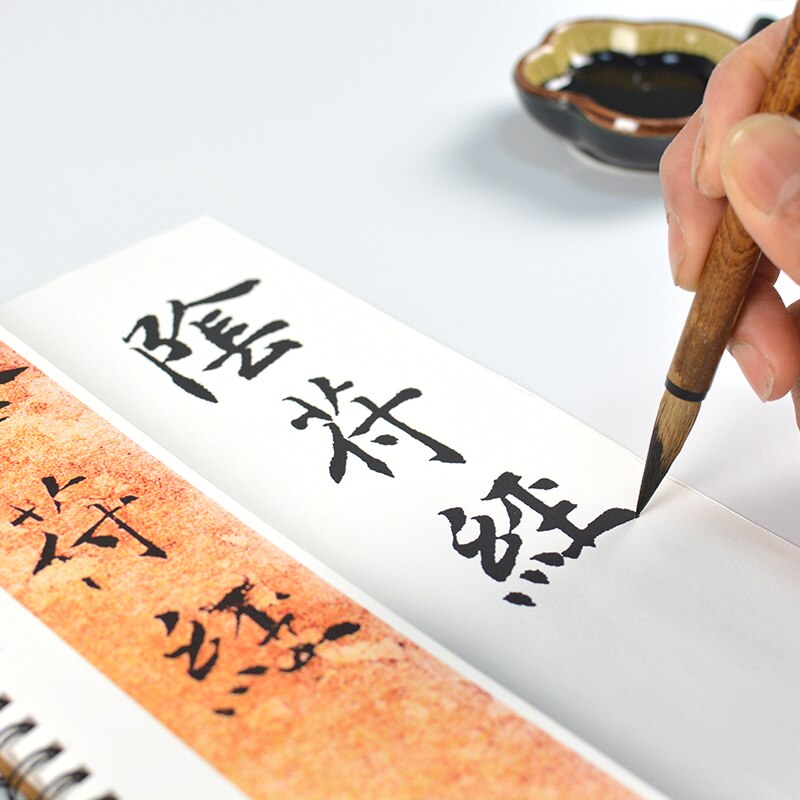 陰符經
符經